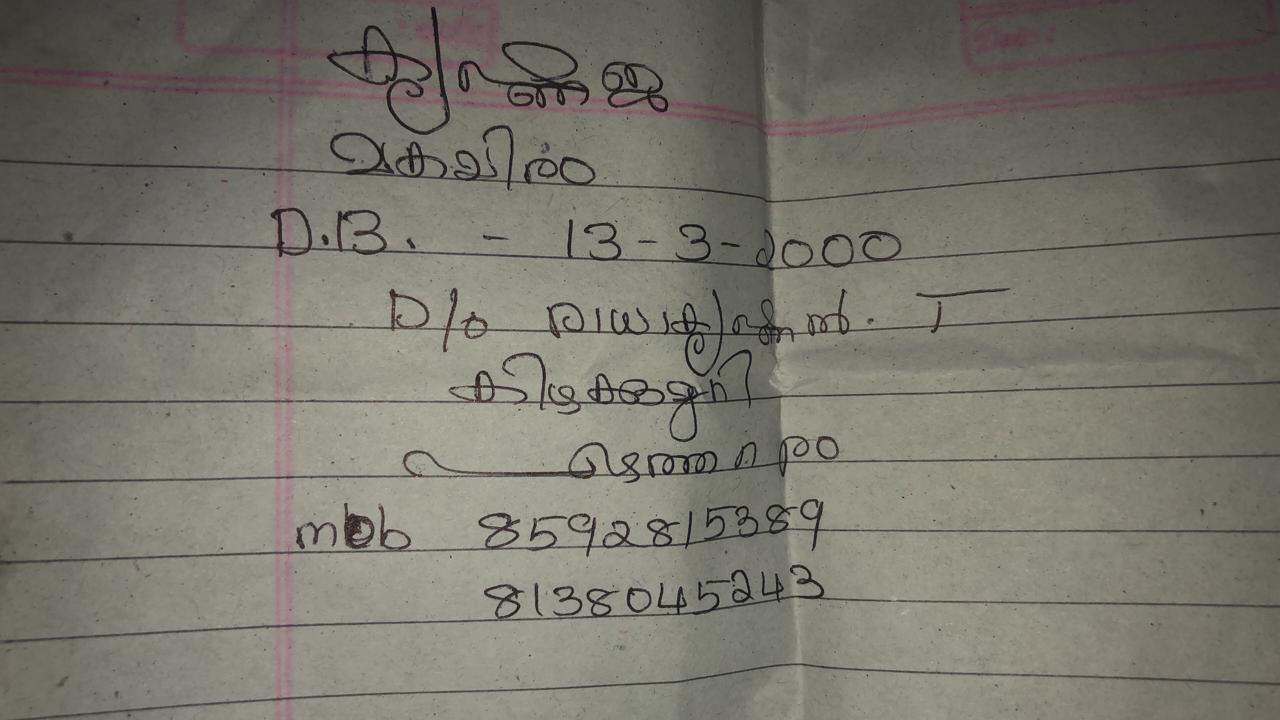 കൃഷ്ണജ
മകയിരം
D.B. - 13-3-2000
D/o രാധാകൃഷ്ണൻ. T
mob 8592815389
8138045243